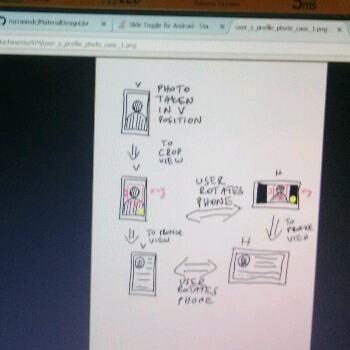 5ms
Slide Toggle for Android - Sta
user_s_profile_photo_case_1.png
user_s_profile_photo_case_1.png
V
PHOTO
TAKEN
IN V
POSITION
TO
CROP
VIEW
V
USER
ROTATES
PHONE
H
TO PROFILE
VIEW
TO PROFILE
VIEW
V
H
USER
ROTATES
PHONE